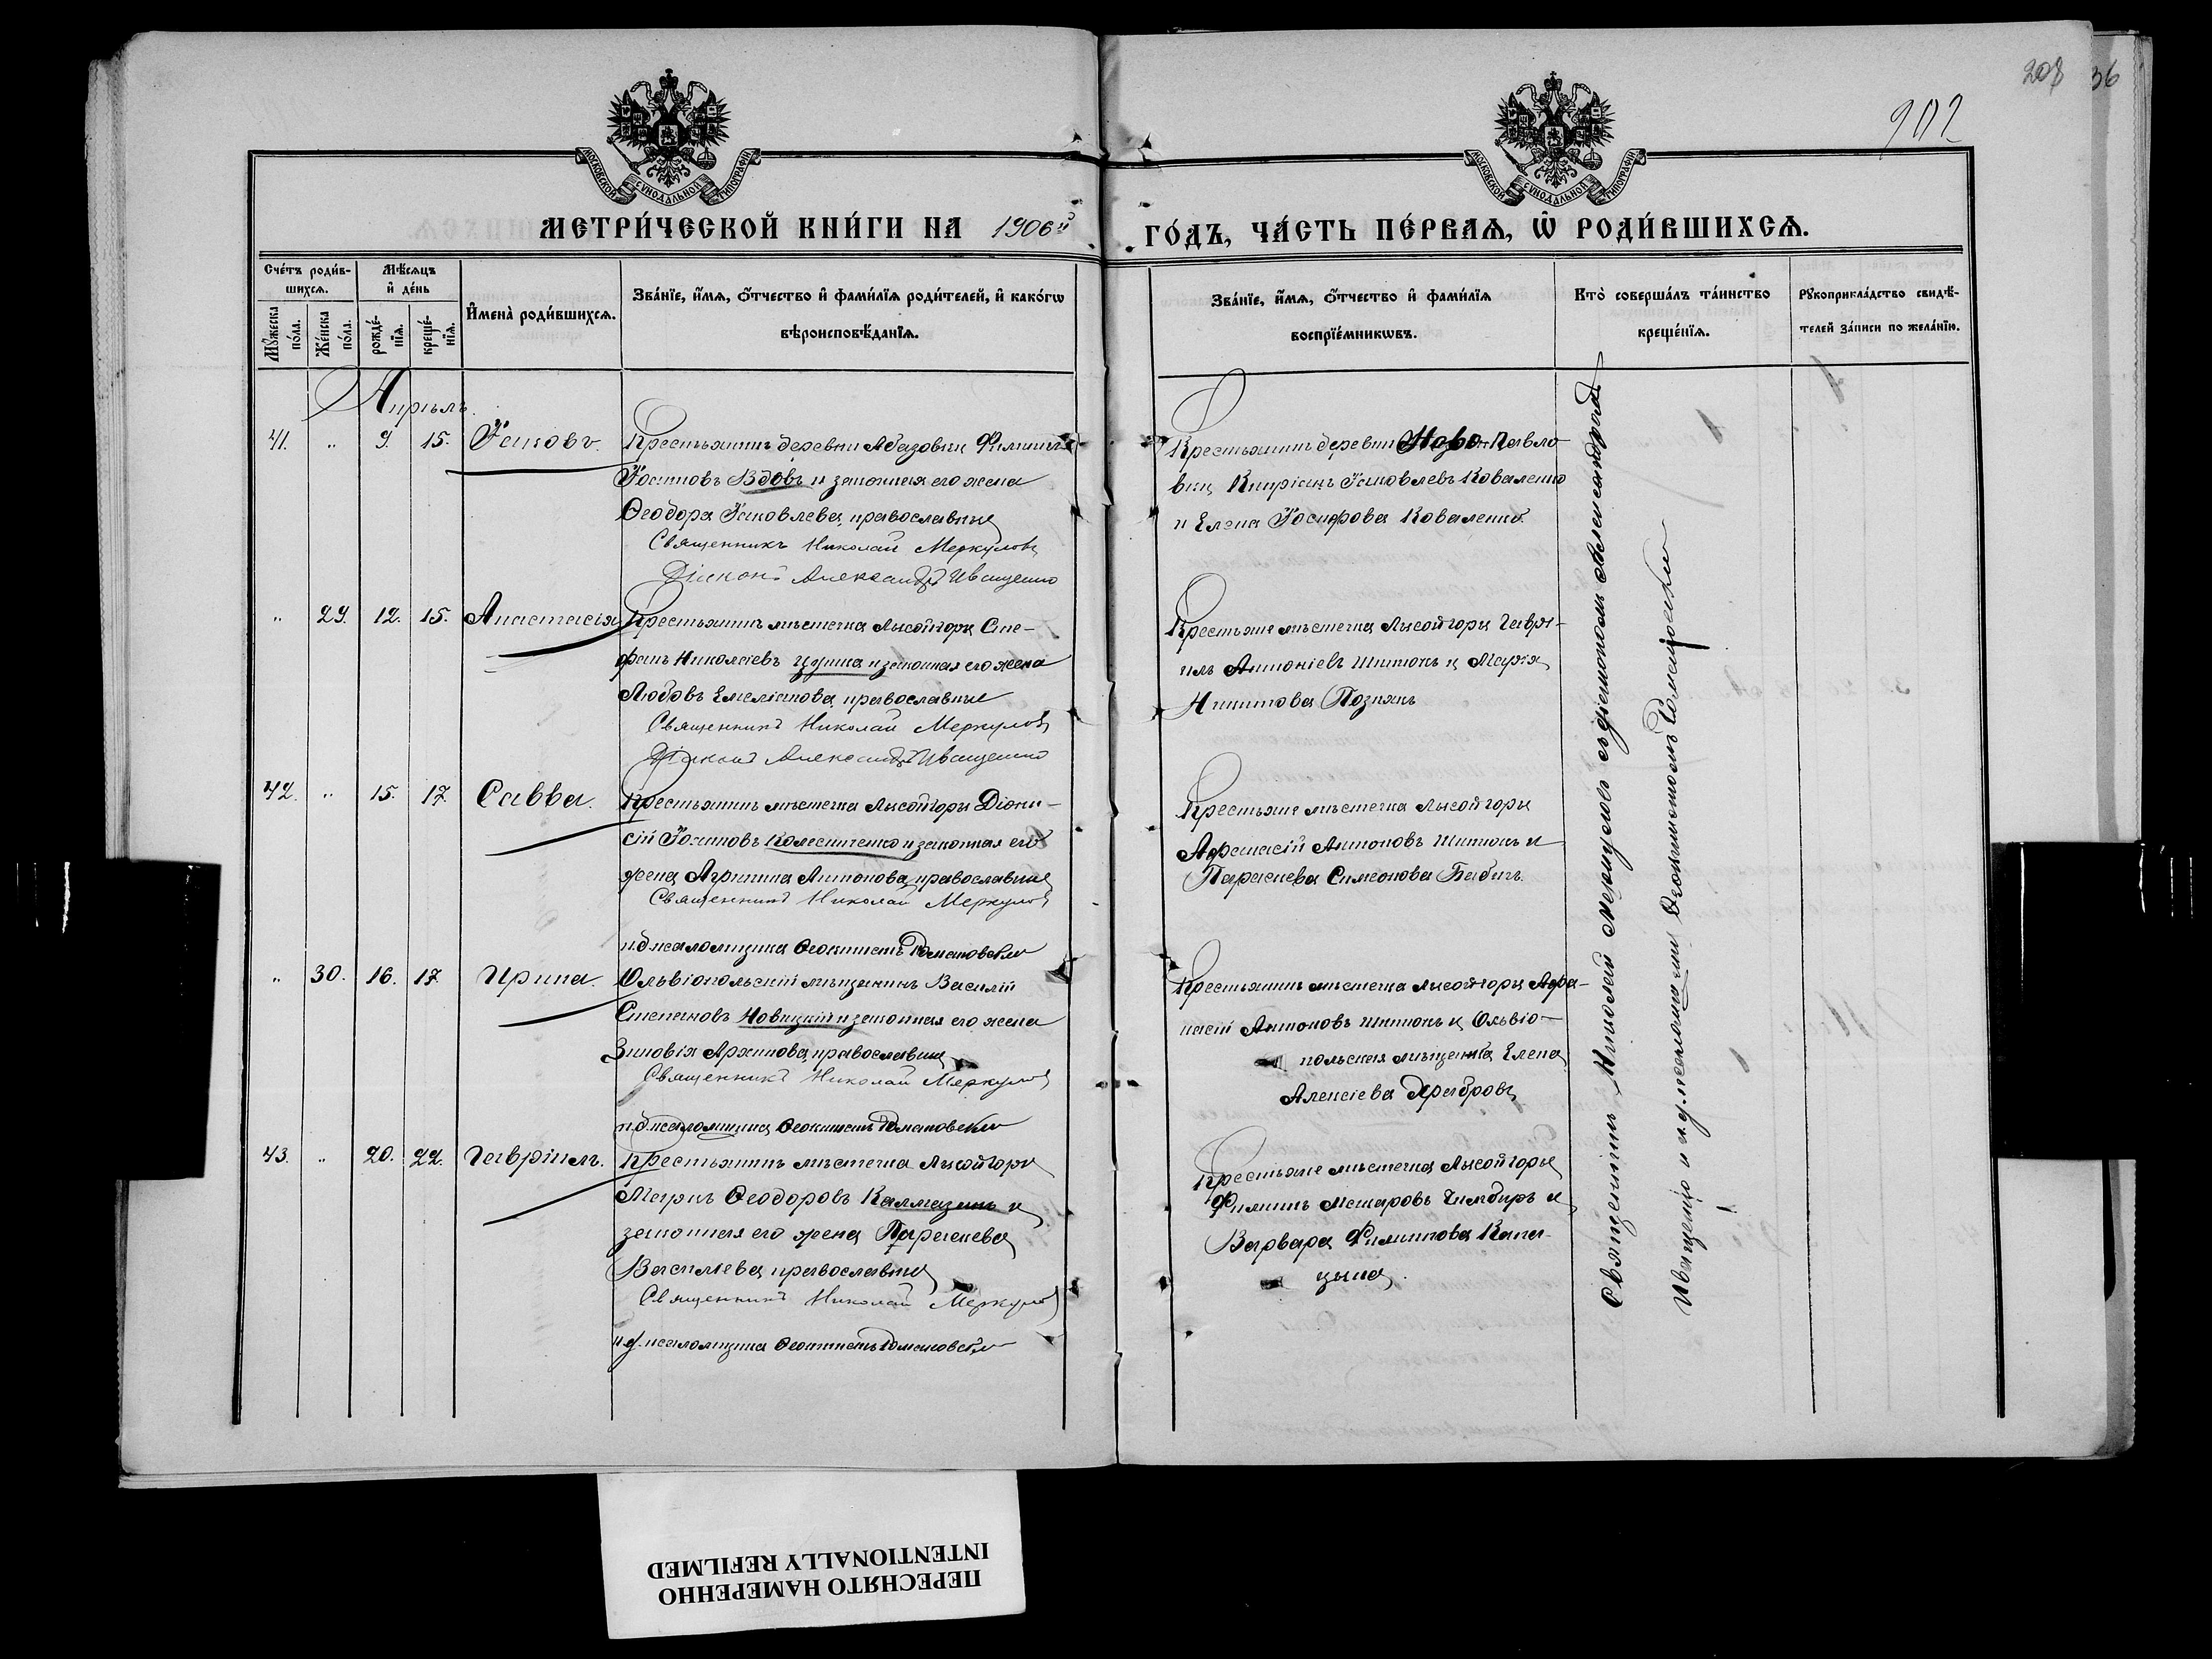 208 36
902
МОСКОВСКОЙ СѴНОДАЛЬНОЙ ТИПОГРАФІИ
МОСКОВСКОЙ СѴНОДАЛЬНОЙ ТИПОГРАФІИ
МЕТРИ́ЧЕСКОЙ КНИ́ГИ НА 1906й
ГО́ДЪ, ЧА́СТЬ ПЕ́РВАѦ, Ѡ҆ РОДИ́ВШИХСѦ.
Сче́тъ роди́в-
шихсѧ.
Мꙋ́жеска по́ла.
Же́нска по́ла.
Мѣ́сѧцъ
и҆ де́нь
рожде́-
нїѧ.
креще́-
нїѧ.
И҆мена̀ роди́вшихсѧ.
Зва́нїе, и҆́мѧ, ѻ҆́тчество и҆ фами́лїѧ роди́телей, и҆ како́гѡ
вѣроисповѣ́данїѧ.
Зва́нїе, и҆́мѧ, ѻ҆́тчество и҆ фами́лїѧ
воспрїе́мникѡвъ.
Кто̀ соверша́лъ та́инство
креще́нїѧ.
Рꙋкоприкла́дство свидѣ́-
телей за́писи по жела́нїю.
Апрѣль.
41. " 9. 15. Іаковъ.
Крестьянинъ деревни Абазовки Филиппъ
Іоанновъ Вдовъ и законная его жена
Ѳеодора Іаковлева, православные
Священникъ Николай Меркулов
Діаконъ Александръ Иващенко
Крестьянинъ деревни Ново-Павло-
вки Кипріанъ Іаковлевъ Коваленко
и Елена Іосифова Коваленко.
" 29. 12. 15. Анастасія
Крестьянинъ мѣстечка Лысойгоры Сте-
фанъ Николаевъ Цупка и законная его жена
Любовь Емеліанова, православные
Священникъ Николай Меркулов
Діаконъ Александръ Иващенко
Крестьяне мѣстечка Лысойгоры Гаврі-
илъ Антоніевъ Шитюкъ и Марія
Никитова Познякъ
42. " 15. 17. Савва.
Крестьянинъ мѣстечка Лысойгоры Діони-
сій Іоанновъ Колесниченко и законная его
жена Агрипина Антонова, православные
Священникъ Николай Меркулов
и.д. псаломщика Ѳеоктистъ Романовскій
Крестьяне мѣстечка Лысойгоры
Афанасій Антоновъ Шитюкъ и
Параскева Симеонова Бабичъ.
" 30. 16. 17. Ирина.
Ольвіопольскій мѣщанинъ Василій
Степановъ Новицкій и законная его жена
Зиновія Архипова, православные
Священникъ Николай Меркулов
и.д. псаломщика Ѳеоктистъ Романовскій
Крестьянинъ мѣстечка Лысойгоры Афа-
насій Антоновъ Шитюкъ и Ольвіо-
польская мѣщанка Елена
Алексіева Храбровъ
43. " 20. 22. Гавріилъ.
Крестьянинъ мѣстечка Лысойгоры
Маркъ Ѳеодоровъ Калмазанъ и
законная его жена Параскева
Васильева, православные
Священникъ Николай Меркулов
и.д. псаломщика Ѳеоктистъ Романовскій
Крестьяне мѣстечка Лысойгоры
Филиппъ Макаровъ Чимбиръ и
Варвара Филиппова Капа-
цына.
Священникъ Николай Меркуловъ съ діакономъ Александромъ
Иващенко и и.д. псаломщика Ѳеоктистомъ Романовскимъ
ПЕРЕСНЯТО НАМЕРЕННО
INTENTIONALLY REFILMED